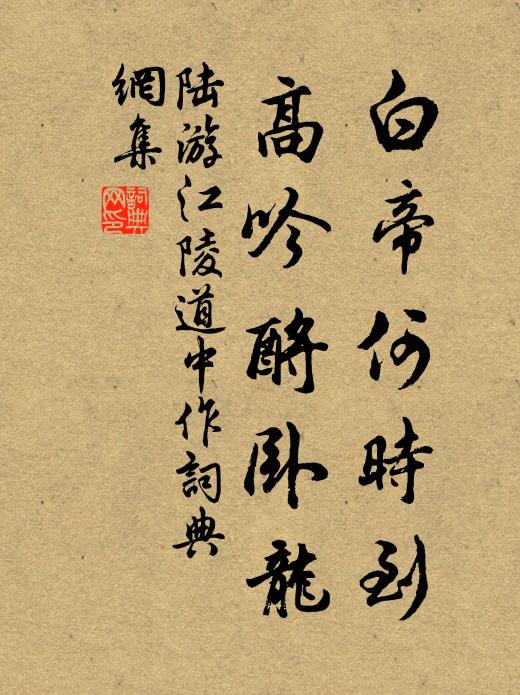 白帝何時到
高吟酹卧龍
陸游江陵道中作詞典
網集
詞典
网印